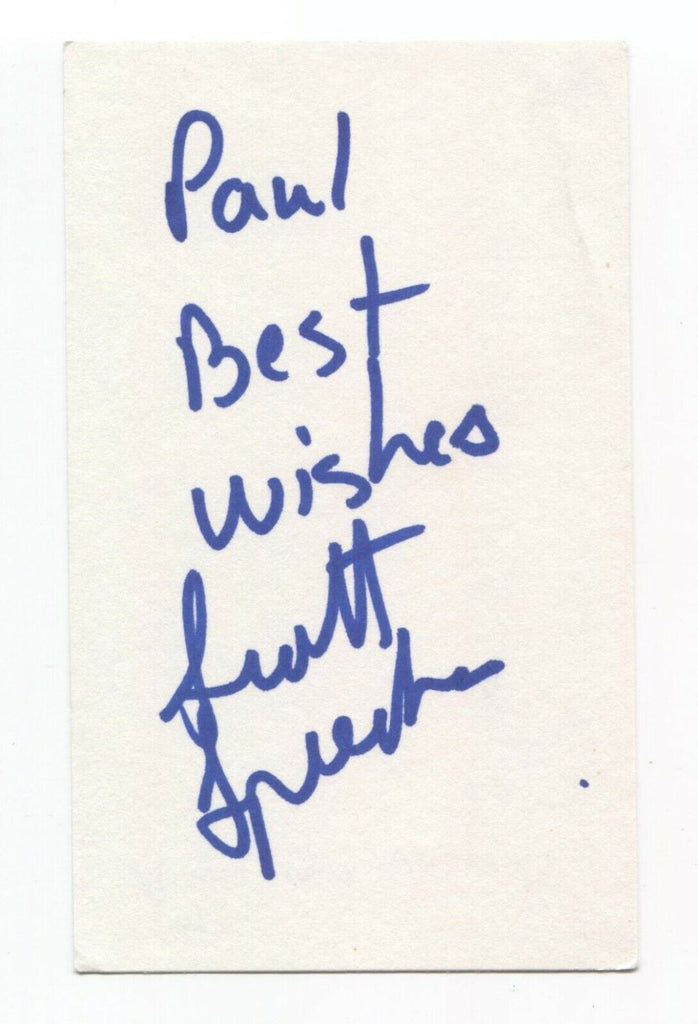 Paul
Best
wishes
Scott